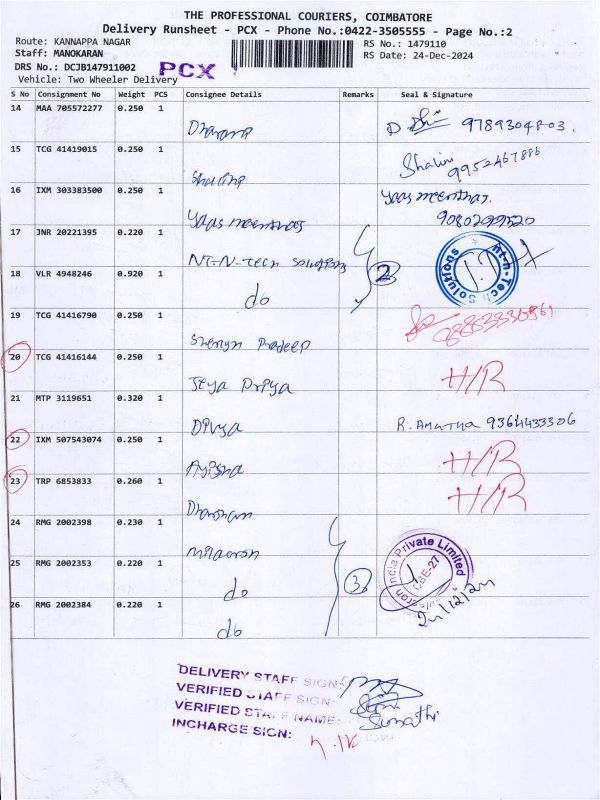 THE PROFESSIONAL COURIERS, COIMBATORE
Delivery Runsheet - PCX - Phone No.:0422-3505555 - Page No.:2
Route: KANNAPPA NAGAR RS No.: 1479110
Staff: MANOKARAN RS Date: 24-Dec-2024
DRS No.: DCJB147911002 PCX
Vehicle: Two Wheeler Delivery
S No Consignment No Weight PCS Consignee Details Remarks Seal & Signature
14 MAA 705572277 0.250 1
Dharani 9789304803.
15 TCG 41419015 0.250 1
Shalini 9952467886
16 IXM 303383500 0.250 1
Yaas meenthas Yaas meenthas.
17 JNR 20221395 0.220 1
NT-N-Tech Solutions 2 nt-n-Tech Solutions
18 VLR 4948246 0.920 1
do
19 TCG 41416790 0.250 1
Pradeep
20 TCG 41416144 0.250 1 H/R
Jeya Priya
21 MTP 3119651 0.320 1
Divya R. Amutha 9364433306
22 IXM 507543074 0.250 1 H/R
Ayisha
23 TRP 6853833 0.260 1 H/R
Dharshan
24 RMG 2002398 0.230 1
25 RMG 2002353 0.220 1 3 India Private Limited CBE-27
do 24/12/24
26 RMG 2002384 0.220 1
do
DELIVERY STAFF SIGN:
VERIFIED STAFF SIGN:
VERIFIED STAFF NAME: Sumathi
INCHARGE SIGN: